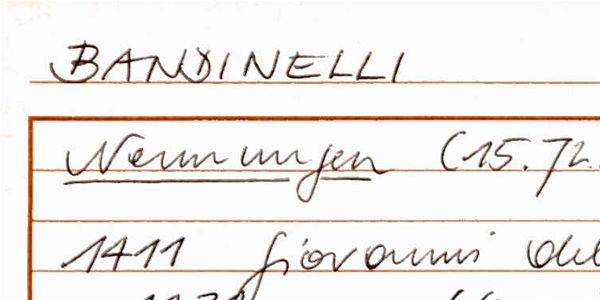 BANDINELLI
Nennungen (15. Jh.
1411 Giovanni del